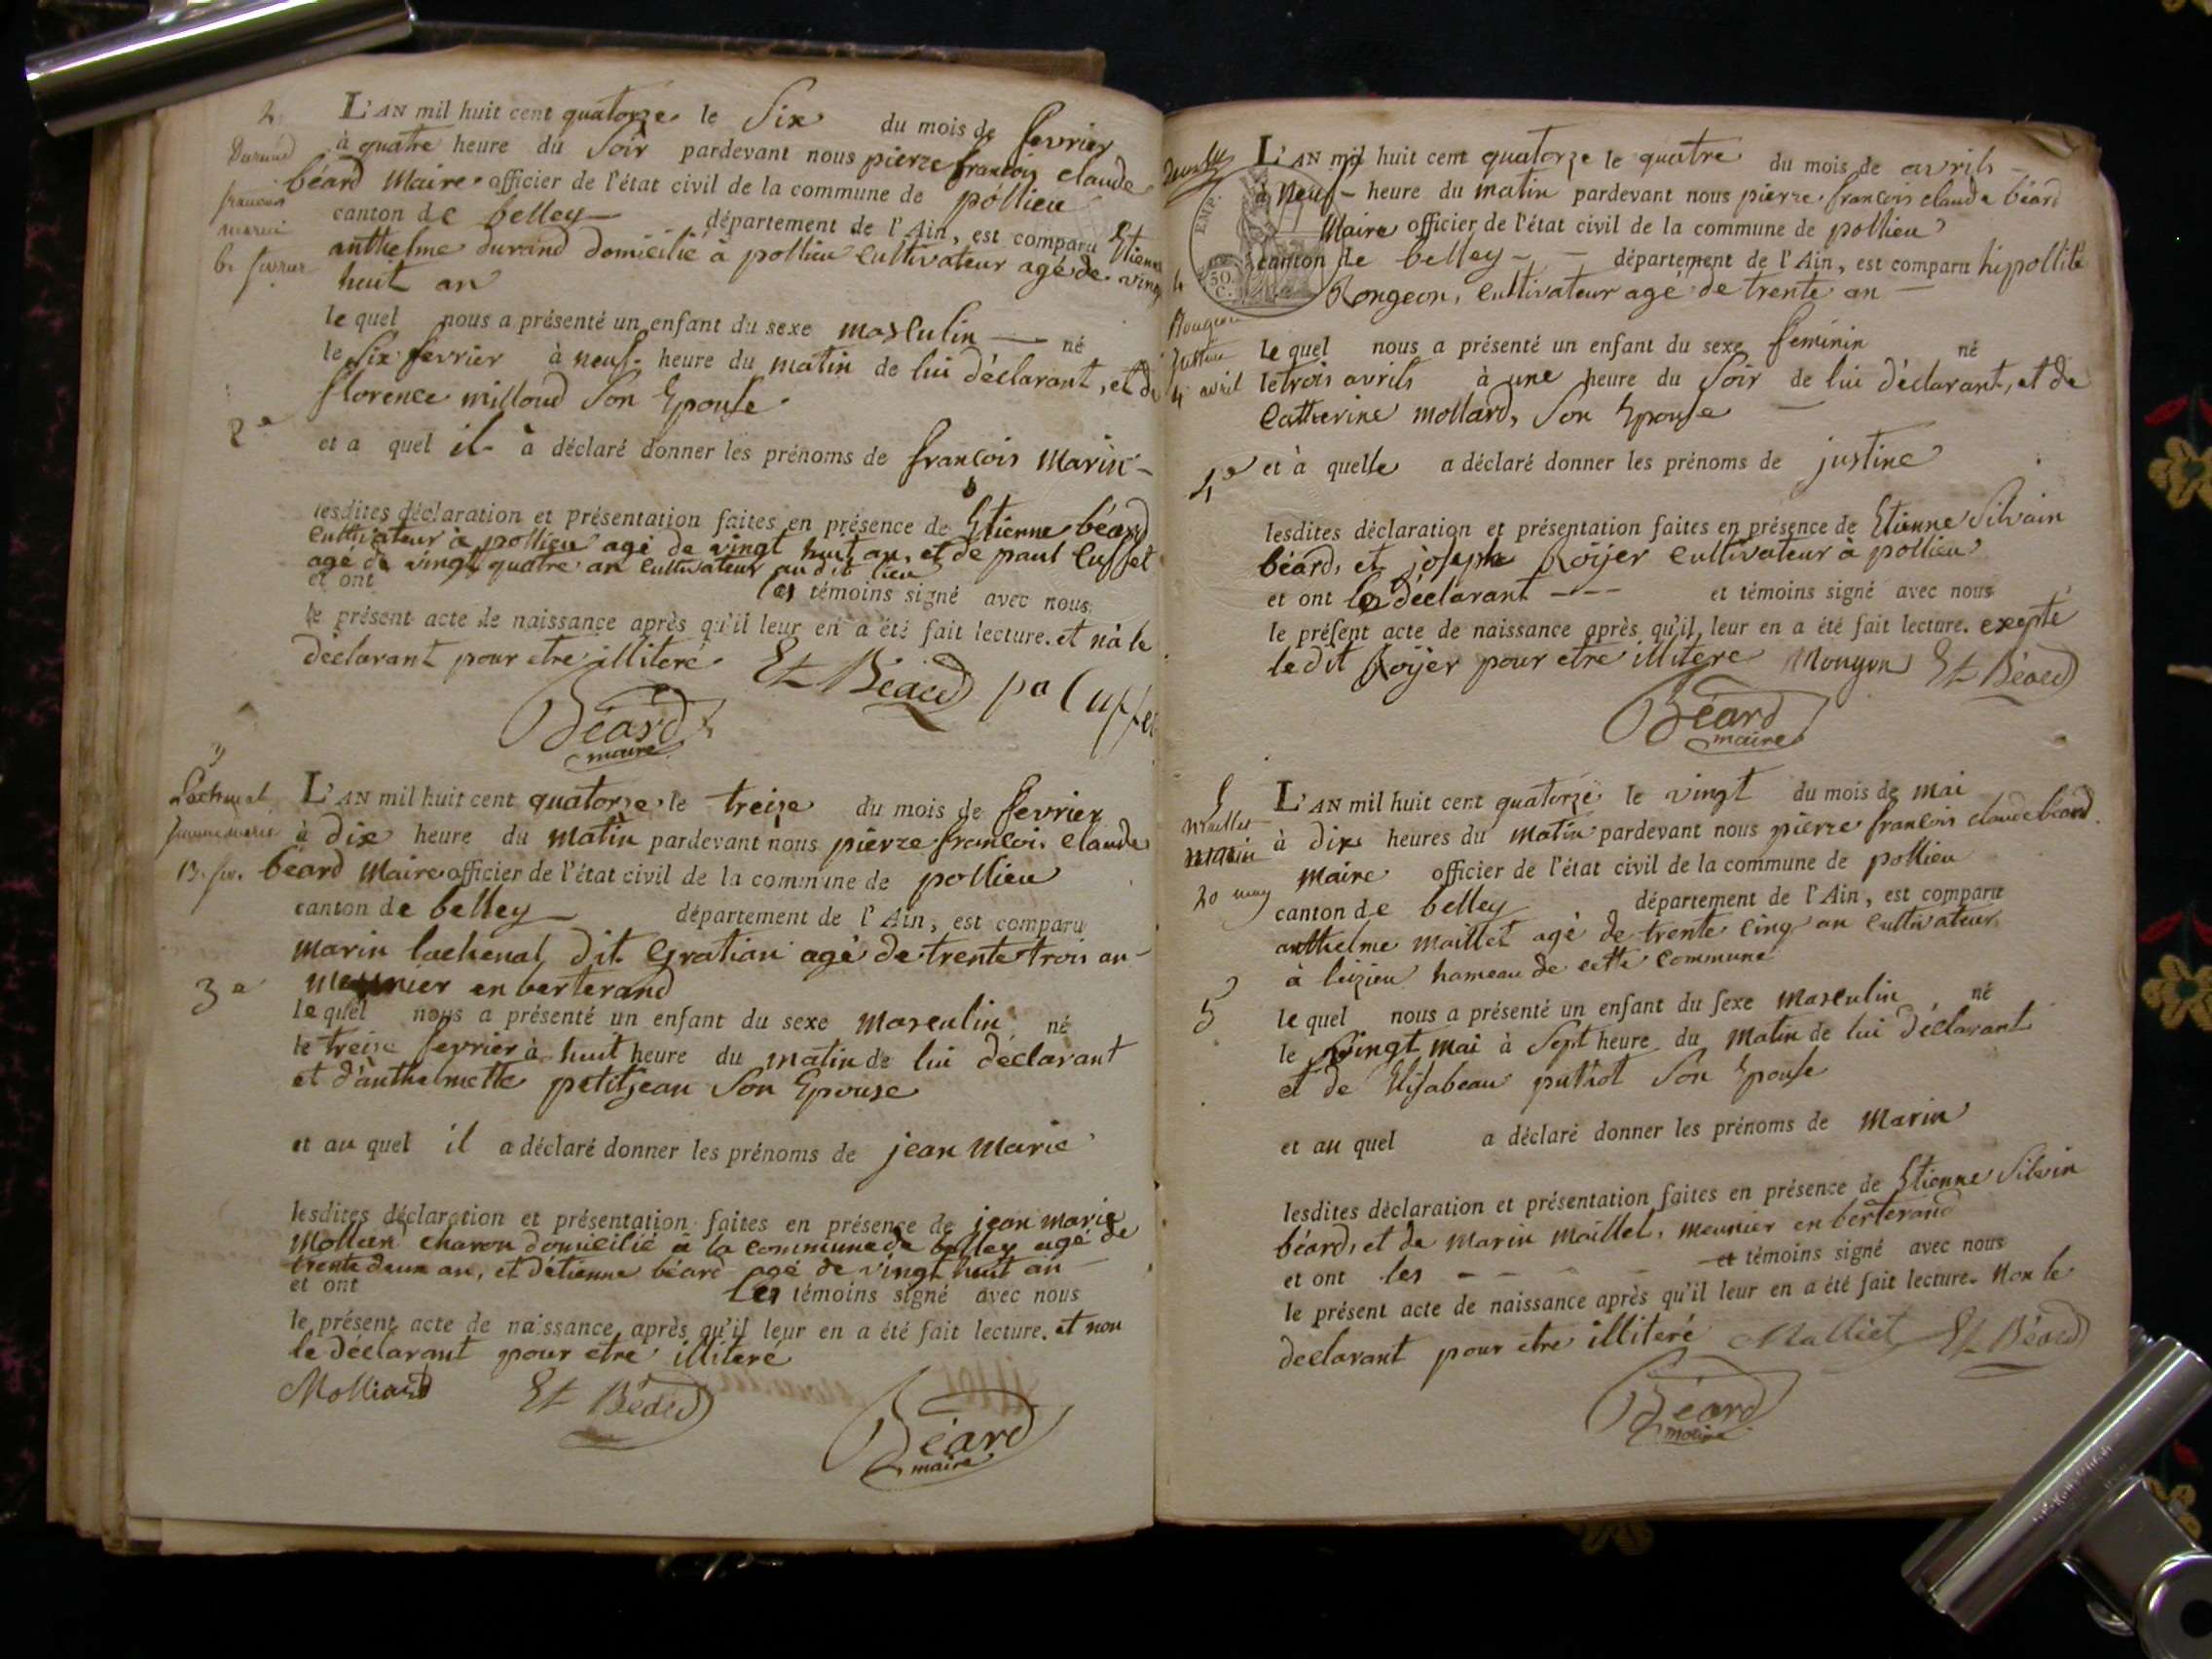 2.
Durand
françois
marin
6. fevrier
2e
L'AN mil huit cent quatorze le Six du mois de fevrier
à quatre heure du Soir pardevant nous pierre françois claude
béard Maire officier de l'état civil de la commune de pollieu
canton de belley — département de l'Ain, est comparu Etienne
anthelme durand domicilié à pollieu cultivateur agé de vingt
huit an
le quel nous a présenté un enfant du sexe masculin — né
le Six fevrier à neuf heure du matin de lui déclarant, et de
florence milloud Son Epouse
et a quel il à déclaré donner les prénoms de françois Marin -
lesdites déclaration et présentation faites en présence de Etienne béard
cultivateur à pollieu agé de vingt huit an, et de paul Cusset
agé de vingt quatre an cultivateur au dit lieu
et ont les témoins signé avec nous
le présent acte de naissance après qu'il leur en a été fait lecture. et n'à le
déclarant pour etre illiteré Et Béard pa Cuffer
Béard
maire
3
Lachenal
jeanne marie
13. fev.
3e
L'AN mil huit cent quatorze le treize du mois de fevrier
à dix heure du matin pardevant nous pierre françois claude
béard Maire officier de l'état civil de la commune de pollieu
canton de belley — département de l'Ain, est comparu
marin lachenal dit Gratian agé de trente trois an -
meunier en berterand
le quel nous a présenté un enfant du sexe masculin né
le treize fevrier à huit heure du matin de lui déclarant
et d'anthelmette petitjean Son Epouse
et au quel il a déclaré donner les prénoms de jean Marie
lesdites déclaration et présentation faites en présence de jean marie
charon domicilié à la commune de belley agé de
trente deux an, et d'étienne béard agé de vingt huit an —
et ont Les témoins signé avec nous
le présent acte de naissance après qu'il leur en a été fait lecture. et non
le déclarant pour etre illiteré
Molliard Et Béard
Béard
maire
EMP.
50
C.
4
Rougeon
Justine
4 avril
4e
L'AN mil huit cent quatorze le quatre du mois de avrils —
à neuf - heure du matin pardevant nous pierre françois claude béard
Maire officier de l'état civil de la commune de pollieu
canton de belley - — département de l'Ain, est comparu hipollite
Rongeon, cultivateur agé de trente an —
le quel nous a présenté un enfant du sexe feminin né
le trois avrils à une heure du Soir de lui déclarant, et de
Catherine mollard, Son Epouse —
et à quelle a déclaré donner les prénoms de justine
lesdites déclaration et présentation faites en présence de Etienne Silvain
béard, et joseph Roijer cultivateur à pollieu
et ont le déclarant - - - et témoins signé avec nous
le présent acte de naissance après qu'il leur en a été fait lecture. exepté
le dit Roijer pour etre illitere Et Béard
Béard
maire
5
Maillet
marin
20 may
5
L'AN mil huit cent quatorze le vingt du mois de mai
à dix heures du matin pardevant nous pierre françois claude béard
Maire officier de l'état civil de la commune de pollieu
canton de belley département de l'Ain, est comparu
anthelme maillet agé de trente cinq an cultivateur
à leizieu hameau de cette commune
le quel nous a présenté un enfant du sexe masculin né
le vingt mai à Sept heure du matin de lui déclarant
et de Elisabeau puthot Son Epouse
et au quel a déclaré donner les prénoms de Marin
lesdites déclaration et présentation faites en présence de Etienne Silvin
béard, et de marin maillet, meunier en berterand
et ont les - - - - et témoins signé avec nous
le présent acte de naissance après qu'il leur en a été fait lecture. Non le
declarant pour etre illiteré Malliet Et Béard
Béard
maire